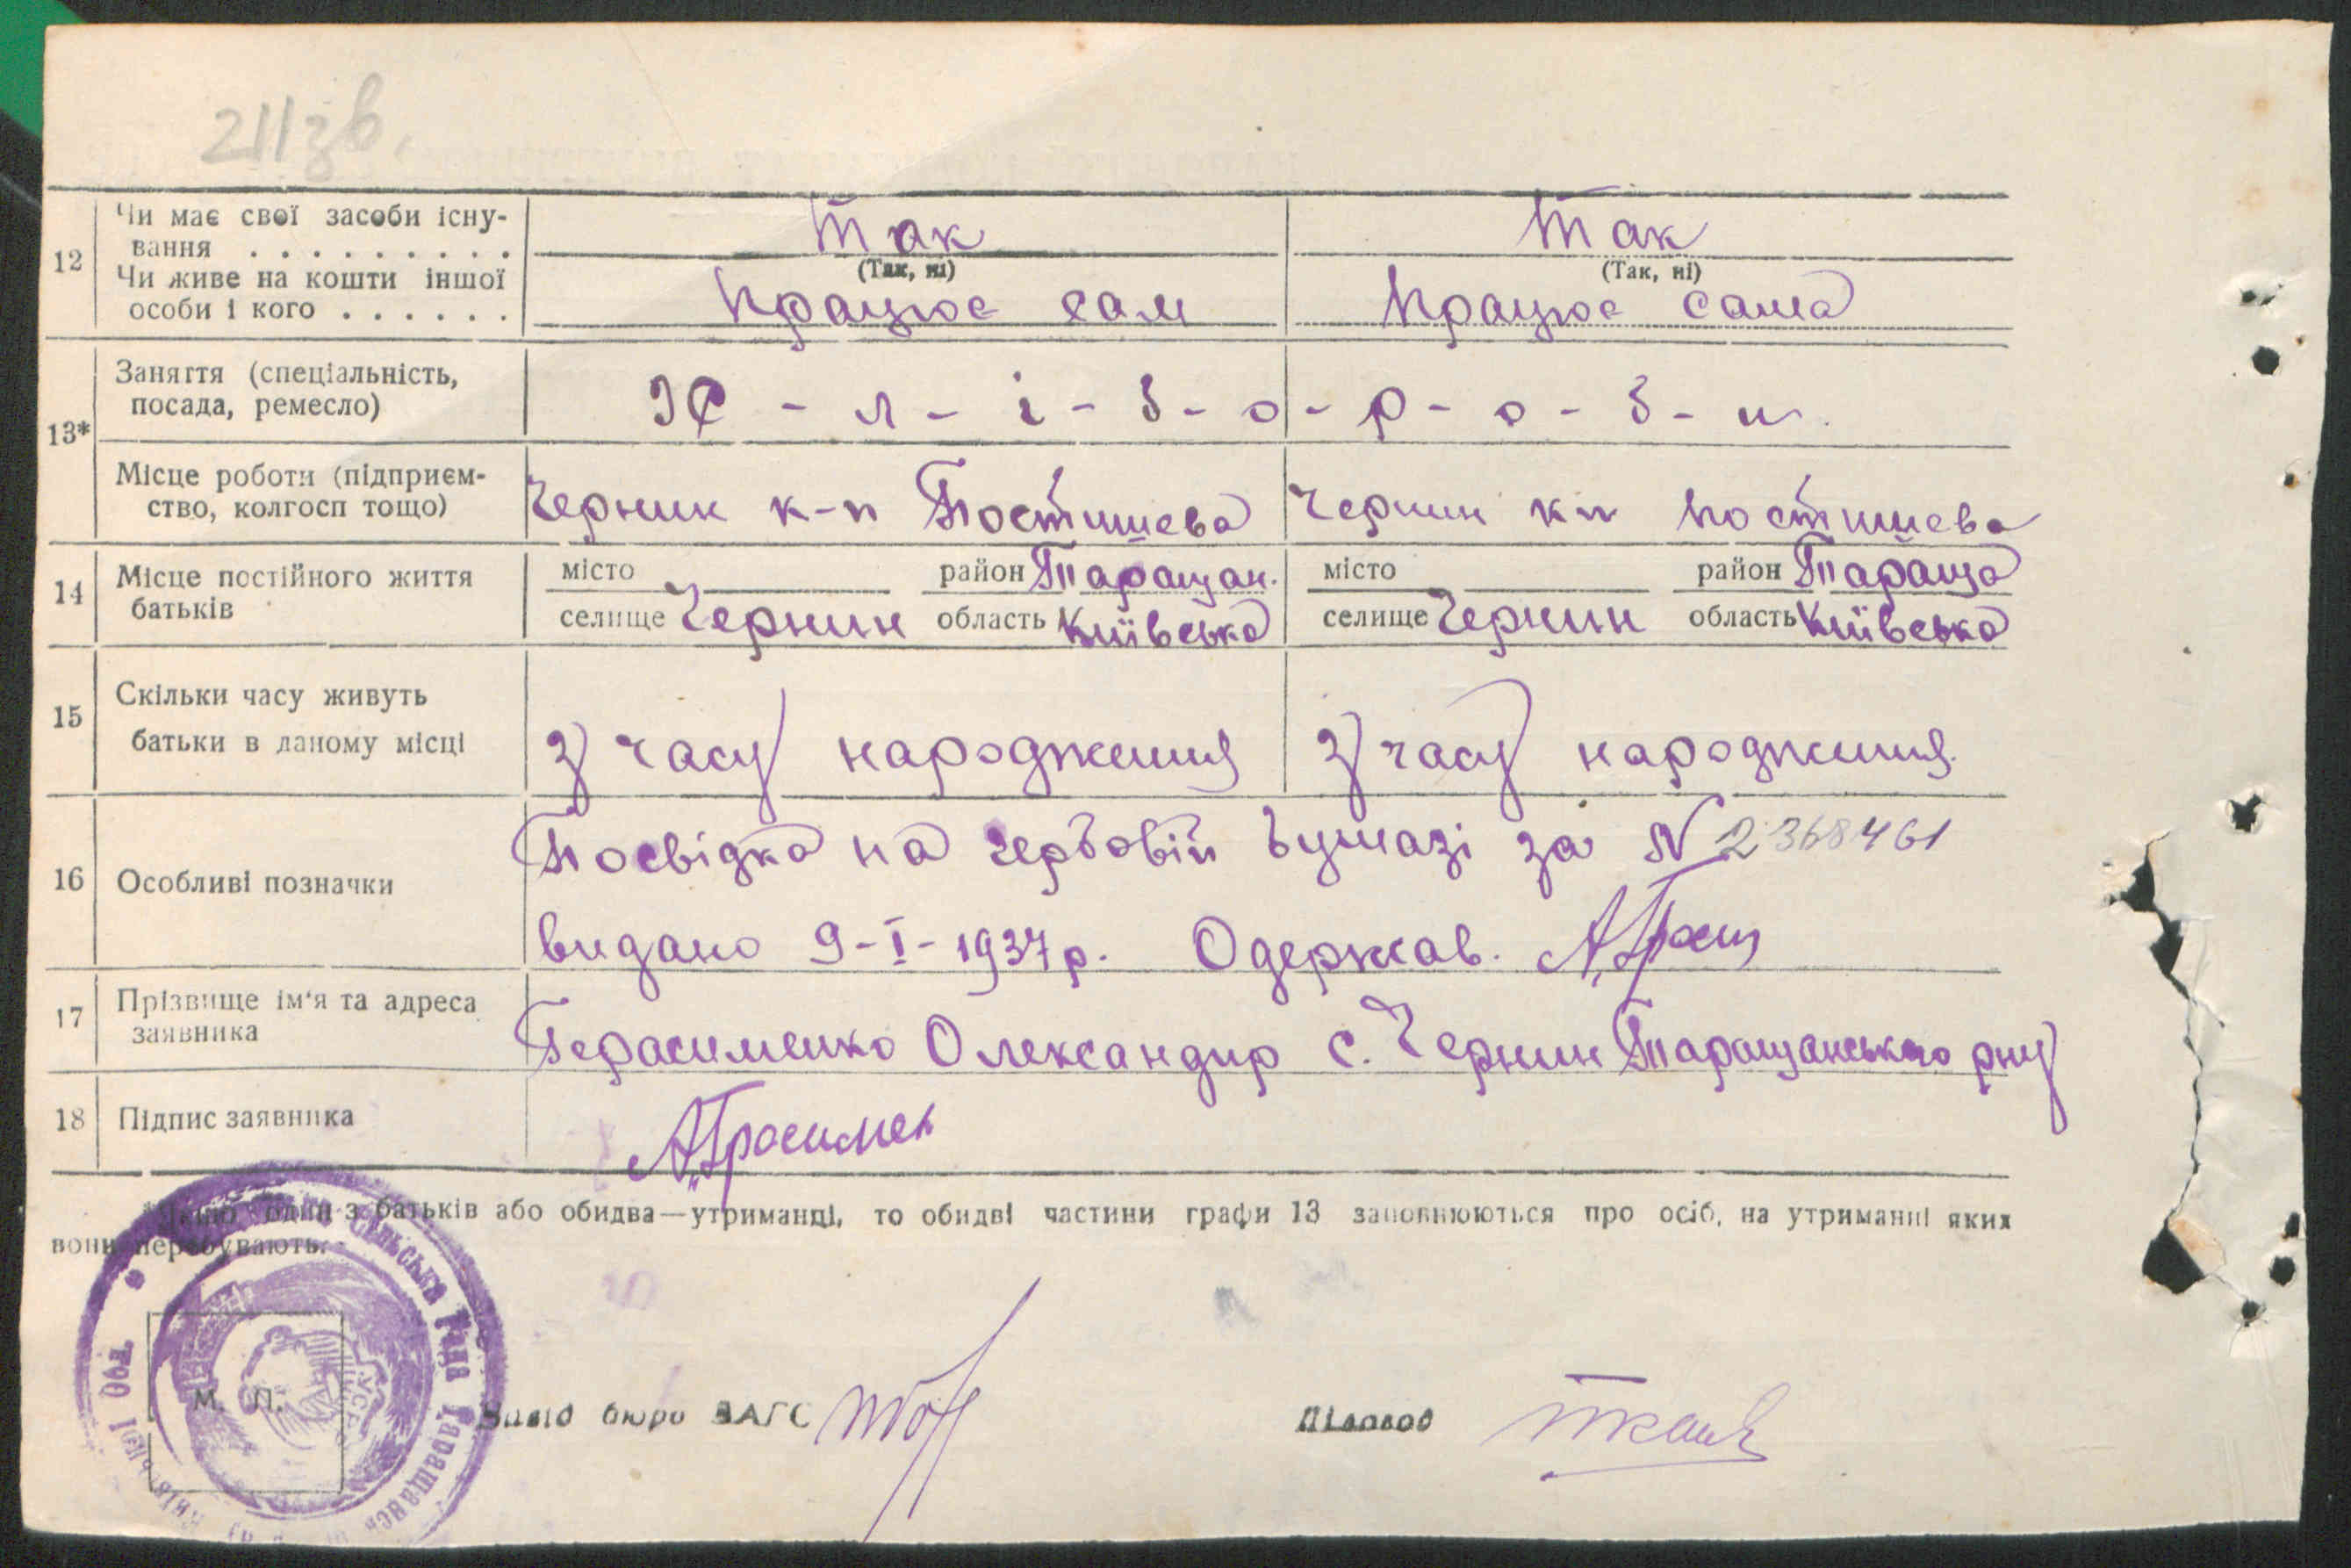 211зв.
12 Чи має свої засоби існу-
вання . . . . . . . . . Так Так
(Так, ні) (Так, ні)
Чи живе на кошти іншої
особи і кого . . . . . . Працює сам Працює сама
13* Заняття (спеціальність,
посада, ремесло) Х - л - і - б - о - р - о - б - и.
Місце роботи (підприєм-
ство, колгосп тощо) Чернин к-п Постишева Чернин к-п Постишева
14 Місце постійного життя
батьків
місто район Таращан. місто район Тараща
селище Чернин область Київська селище Чернин область Київська
15 Скільки часу живуть
батьки в даному місці З часу народження З часу народження.
16 Особливі позначки
Посвідка на гербовій бумазі за N 2368461
видано 9-I-1937 р. Одержав. А.Грасим
17 Прізвище ім'я та адреса
заявника Герасименко Олександир с. Чернин Таращанського рну
18 Підпис заявника А.Грасимен
*Якщо один з батьків або обидва—утриманці, то обидві частини графи 13 заповнюються про осіб, на утриманні яких
вони перебувають.
Сільська Рада Таращансь
УСРР
М. П.
Завід бюро ЗАГС
Діловод